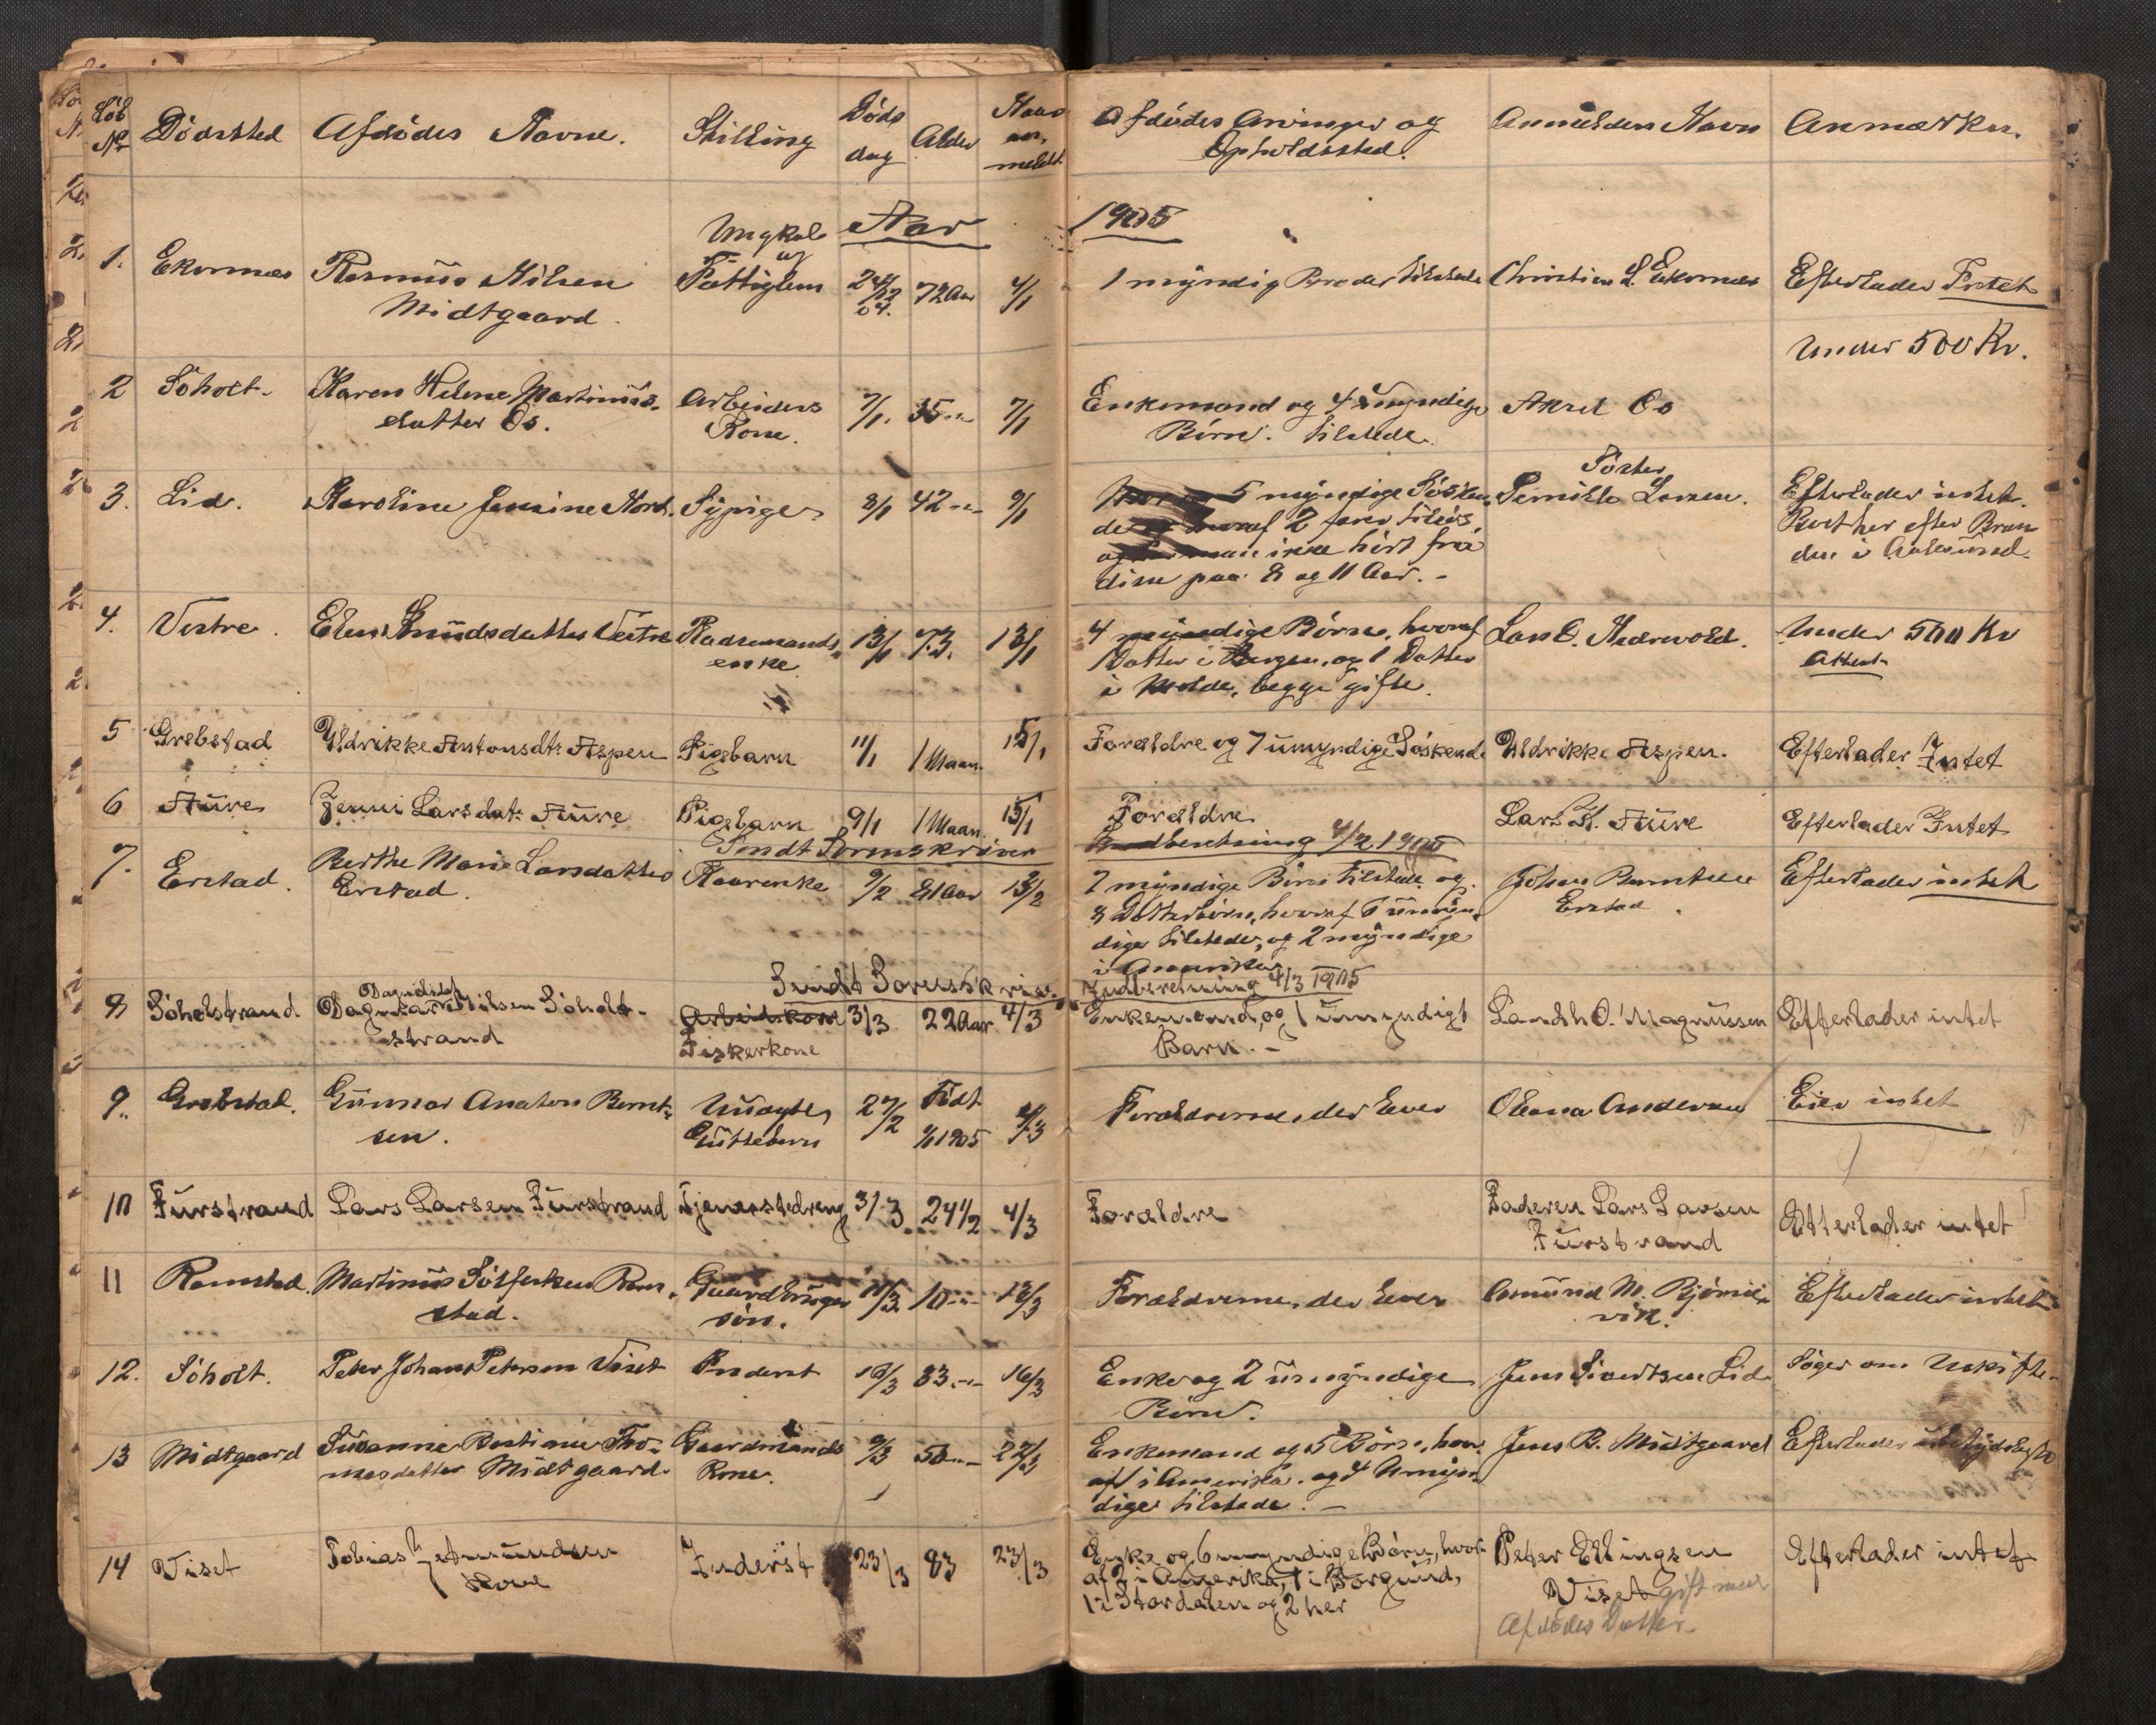 Löb Nr Dödssted Afdödes Navne. Stilling Döds dag Alder Naar an- meldt Afdödes Arvinger og Opholdssted. Anmelders Navn Anmærkn.
Aar 1905
1. Ekornæs Rasmus Nilsen Midtgaard. Ungkarl og Fattiglem 24/12 04. 72 Aar 4/1 1 myndig Broder tilstede Christian L. Ekornæs Efterlader Intet
Under 500 Kr.
2 Söholt. Karen Helene Martinus- datter Os. Arbeiders Kone. 7/1. 35 -"- 7/1 Enkemand og 4 umyndige Börn. tilstede. Aksel Os
3. Lid. Karoline Jensine Nord. Sypige 8/1 42 -"- 9/1 5 myndige Söskende hvoraf 2 farer tilsös, og man ikke hört fra disse paa 8 og 11 Aar. - Söster Pernille Larsen. Efterlader intet. Reist her efter Bran den i Aalesund.
4. Vestre. Knudsdatter Vestre Kaaremands enke. 13/1 73. 13/1 4 myndige Börn, hvoraf 1 Datter i Bergen, og 1 Datter i Molde, begge gifte. Lars O. Nedrevold. Under 500 Kr Attest
5 Grebstad Uldrikke Antonsdtr Aspen Pigebarn 11/1 1 Maan. 15/1 Forældre og 7 umyndige Söskende Uldrikke Aspen. Efterlader Intet
6 Aure Jenni Larsdatr Aure Pigebarn 9/1 1 Maan. 15/1 Forældre Lars K. Aure Efterlader Intet
Sendt Sorenskriver Indberetning 4/2 1905
7. Erstad. Berthe Marie Larsdatter Erstad. Kaarenke 9/2 81 Aar 13/2 7 myndige Börn tilstede og 8 Datterbörn, hvoraf 6 umyn- dige tilstede, og 2 myndige i Amerika Johan Berntsen Erstad. Efterlader intet
Sendt Sorensskriv. Indberetning 4/3 1905
8 Söholtstrand Dagmar Nilsen Söholt- strand Arbeidskone Fiskerkone 3/3 22 Aar 4/3 Enkemand, og 1 umyndigt Barn. - O. Magnussen Efterlader intet
9. Grebstad. Gunnar Anaton Bernt- sen. Uuægte Gutteburn 27/2 Födt 1/1 1905 4/3 Forældrene, der lever Oleana Andersen Eier intet
10 Furstrand Lars Larsen Furstrand Tjenestedreng 3/3 24 1/2 4/3 Forældre Faderen Lars Larsen Furstrand Efterlader intet
11 Ramstad. Martinus Sölfesten Ram- stad. Gaardbruger sön. 11/3 10 -"- 13/3 Forældrene, der lever Amund M. Björne- vik. Efterlader intet
12. Söholt. Peter Johan Petersen Viset Inderst 10/3 33 -"- 16/3 Enke og 2 umyndige Börn. Jens Sivertsen Lid Söger om Uskifte.
13 Midtgaard Susanne Bastiane Tho- masdatter Midtgaard. Gaardmands Kone. 9/3 50 -"- 22/3 Enkemand og 5 Börn, hvor af 1 i Amerika. og 4 Umyn dige tilstede. - Jens B. Midtgaard Efterlader
14 Viset Tobias Hove Inderst 23/3 83 23/3 Enke og 6 myndige Börn, hvor af 2 i Amerika, 1 i Borgund, 1 i Stordalen og 2 her Peter Ellingsen Viset gift med Afdödes Datter. Efterlader intet